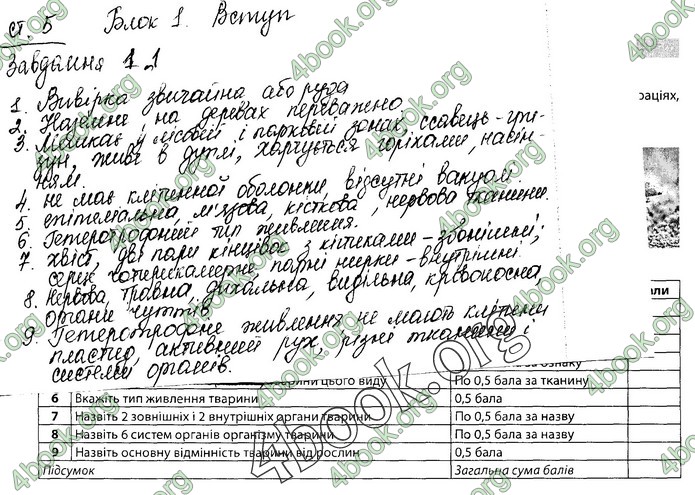 ст. 5 Блок 1. Вступ
Завдання 1.1
1. Вивірка звичайна або руда
2. Наземне, на деревах переважно
3. Мешкає у лісовій і парковій зонах, ссавець-гри-
зун, живе в дуплі, харчується горіхами, насін-
ням.
4. не має клітинної оболонки, відсутні вакуолі
5. епітеліальна, м'язова, кісткова, нервова тканини.
6. Гетеротрофний тип живлення.
7. хвіст, дві пари кінцівок з кігтиками - зовнішні;
серце чотирикамерне, парні нирки - внутрішні.
8. Нервова, травна, дихальна, видільна, кровоносна,
органи чуттів
9. Гетеротрофне живлення, не мають клітини
пластид, активний рух, різні тканини і
системи органів.
раціях,
али
за ознаку
тварини цього виду По 0,5 бала за тканину
6 Вкажіть тип живлення тварини 0,5 бала
7 Назвіть 2 зовнішніх і 2 внутрішніх органи тварини По 0,5 бала за назву
8 Назвіть 6 систем органів організму тварини По 0,5 бала за назву
9 Назвіть основну відмінність тварини від рослин 0,5 бала
Підсумок Загальна сума балів
4book.org